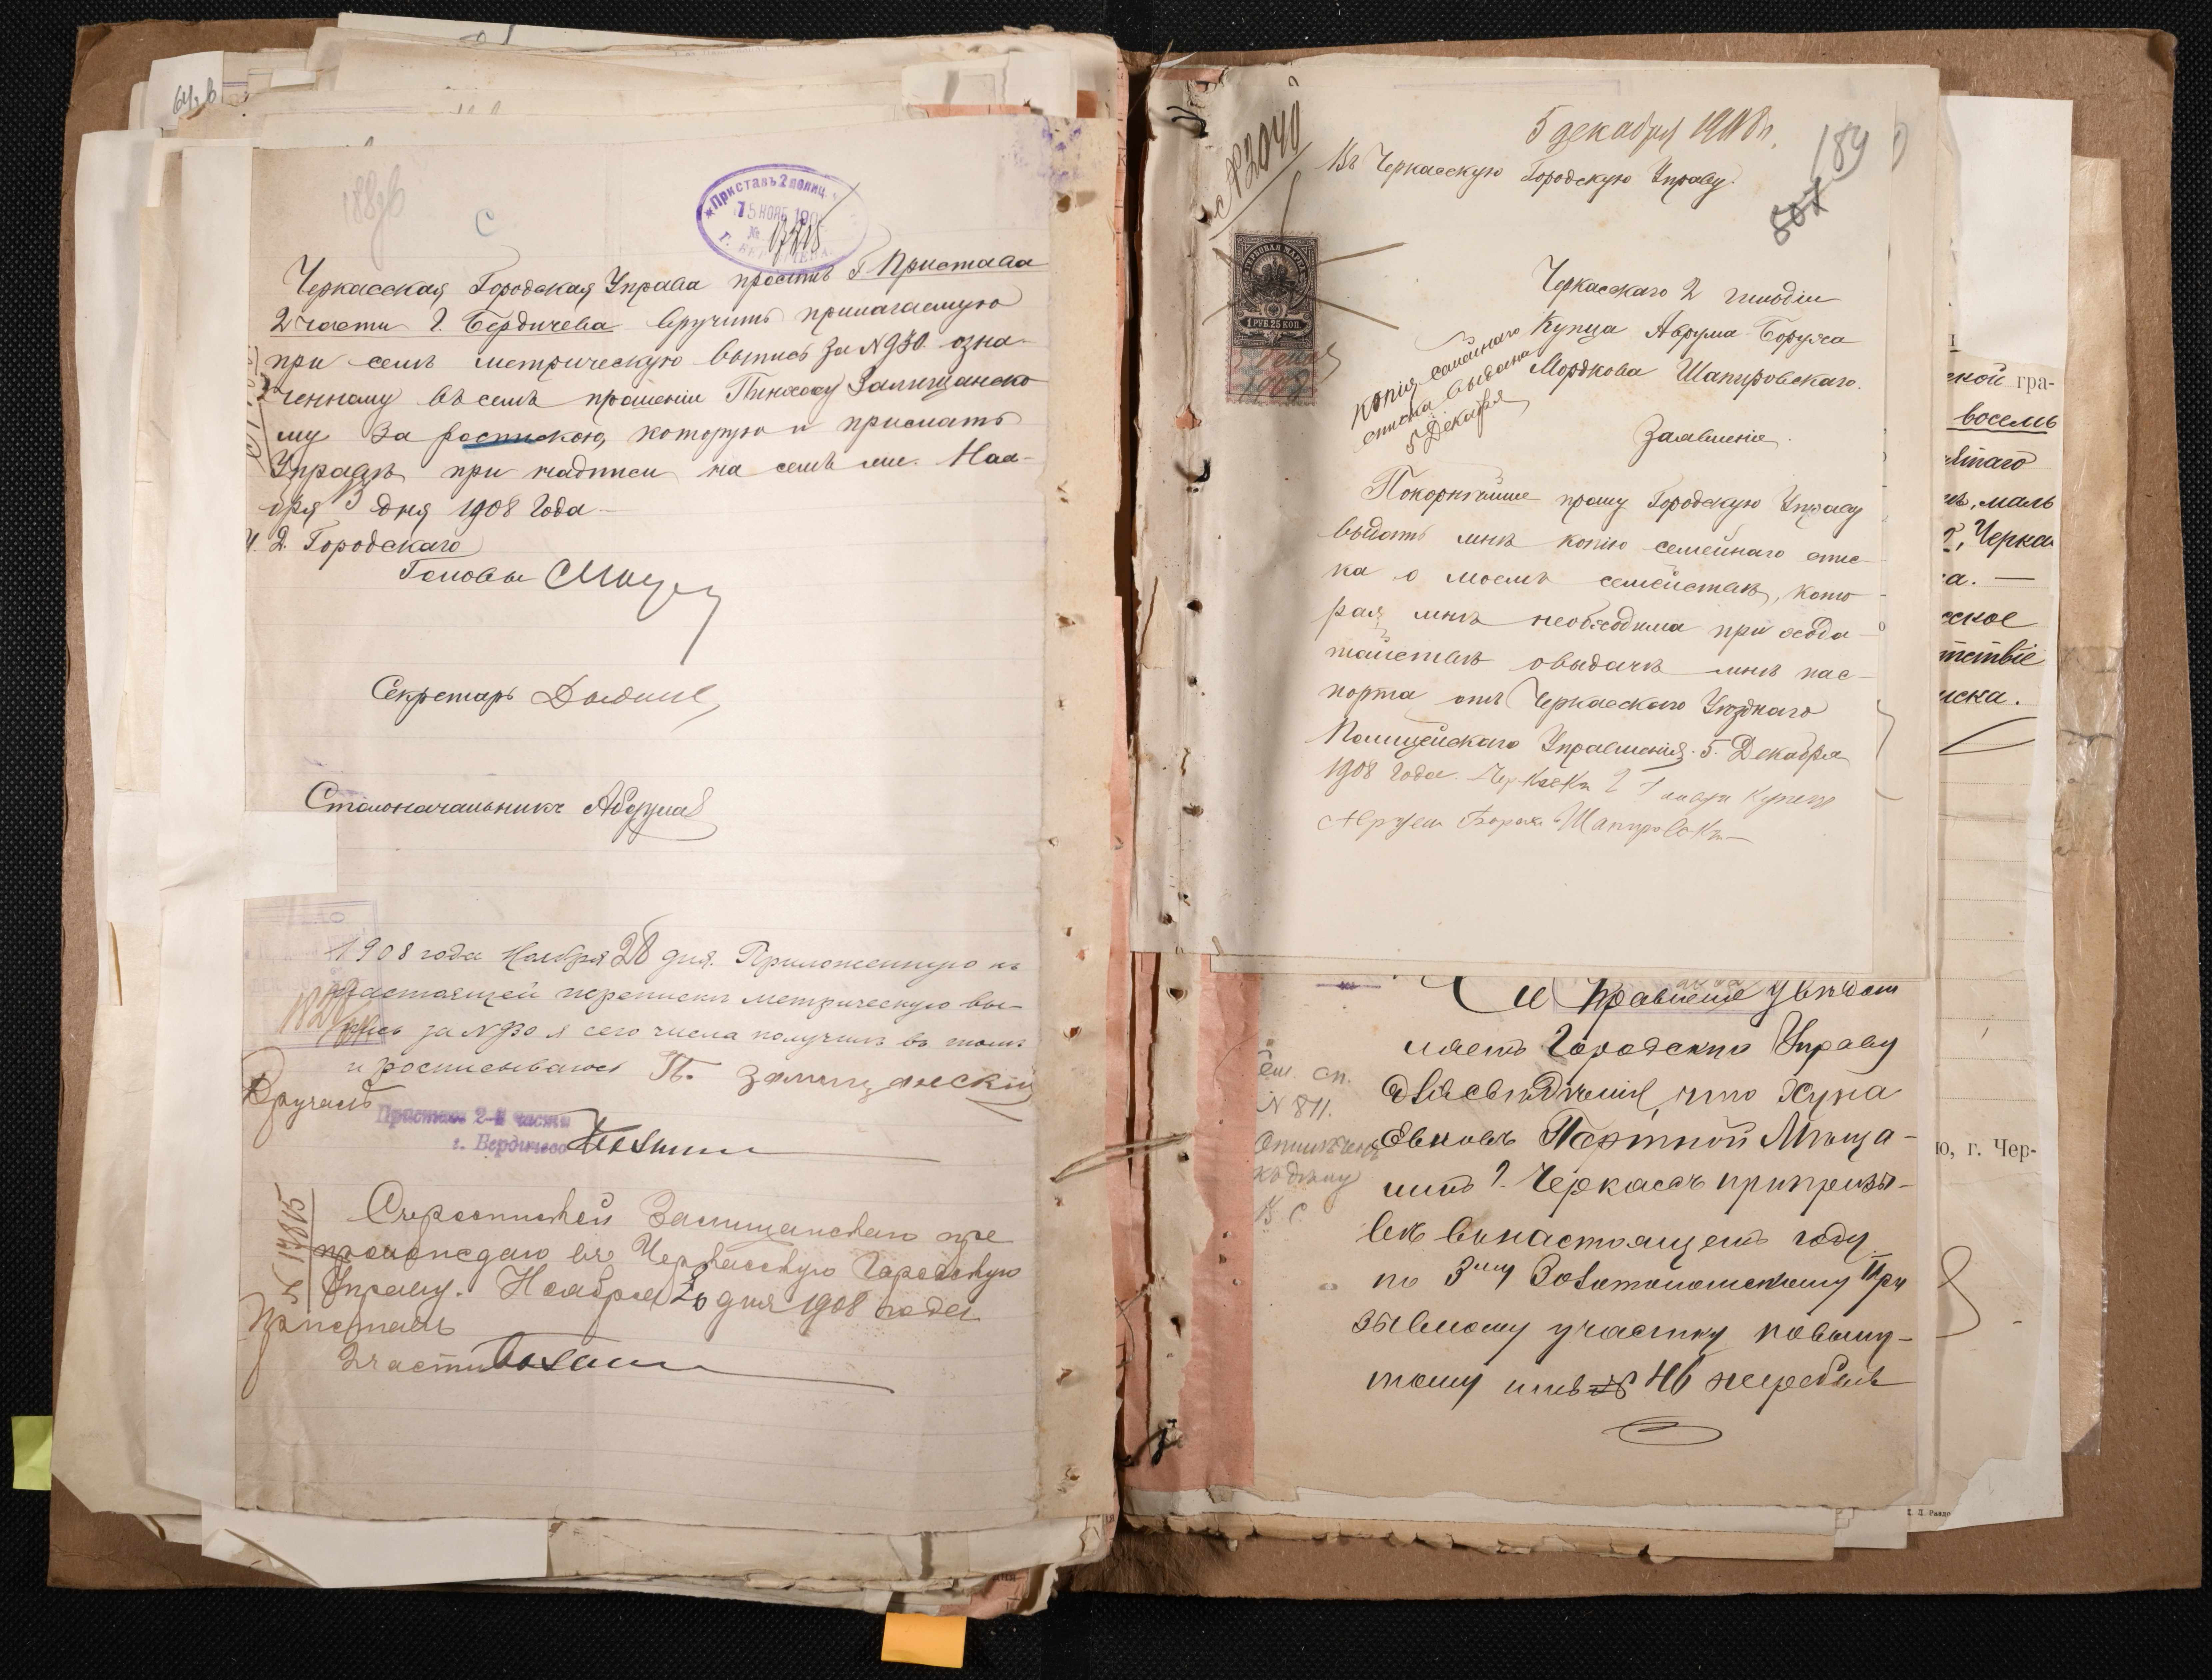 64 в
188 в
Приставъ 2 полиц.
15 НОЯБ 190
№ 17815
Г. БЕРДИЧЕВА
С
Черкасская Городская Управа проситъ Г. Пристава
2 части г. Бердичева вручить прилагаемую
при семъ метрическую выпись за № 930 озна-
ченному въ семъ прошеніи Пинхосу Залищанско
му за роспискою, которую и прислать
Управѣ при надписи на семъ же. Нoя-
бря 13 дня 1908 года
И. Д. Городского
Головы
Секретарь
Столоначальникъ
1908 года Ноября 20 дня. Приложенную къ
настоящей перепискѣ метрическую вы-
пись за № 930 я сего числа получилъ въ томъ
и росписываюсь П. Залищанскій
Вручилъ
Приставъ 2-й части
г. Бердичева
№ 17815
Съ роспиской Залищанскаго пре
провождаю въ Черкасскую Городскую
Управу. Ноября 20 дня 1908 года
Приставъ
2 части
№ 2040
5 декабря 1908 г.
189
807
Въ Черкасскую Городскую Управу.
ГЕРБОВАЯ МАРКА
1 РУБ. 25 КОП.
5 Декаб
1908
Черкасскаго 2 гильдіи
Купца Аврума-Боруха
Мордкова Шапировскаго.
Копія семейнаго
списка выдана
5 Декабря
Заявленіе.
Покорнѣйше прошу Городскую Управу
выдать мнѣ копію семейнаго спис-
ка о моемъ семействѣ, кото-
рая мнѣ необходима при хода-
тайствѣ о выдачѣ мнѣ пас-
порта отъ Черкасскаго Уѣзднаго
Полицейскаго Управленія. 5 Декабря
1908 года. Черкаски 2 Гильди Купецъ
Аврум Борух Шапировски
Правленіе увѣдом
ляетъ Городскую Управу
для свѣдѣнія, что Хуна
Евновъ Портной Мѣща-
нинъ г. Черкассъ при призы-
вѣ въ настоящемъ году
по 3му Золотоношскому При
зывному участку по выну-
тому имъ № 46 жеребью
Сем. сп.
№ 811.
Отмѣчено
ской гра-
восемь
ятаго
маль
Черка
а. —
ское
тствіе
иска.
ю, г. Чер-